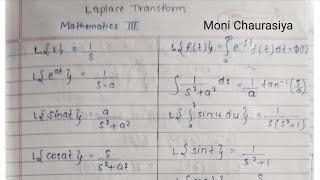 Laplace Transform
Mathematics III
Moni Chaurasiya
L{1} = 1/s
L{f(t)} = ∫₀^∞ e^-st f(t) dt = Φ(s)
L{e^at} = 1/(s-a)
∫ 1/(s²+a²) ds = 1/a tan⁻¹(s/a)
L{sinat} = a/(s²+a²)
L{∫₀ᵗ sinu du} = 1/(s(s²+1))
L{cosat} = s/(s²+a²)
L{sint} = 1/(s²+1)